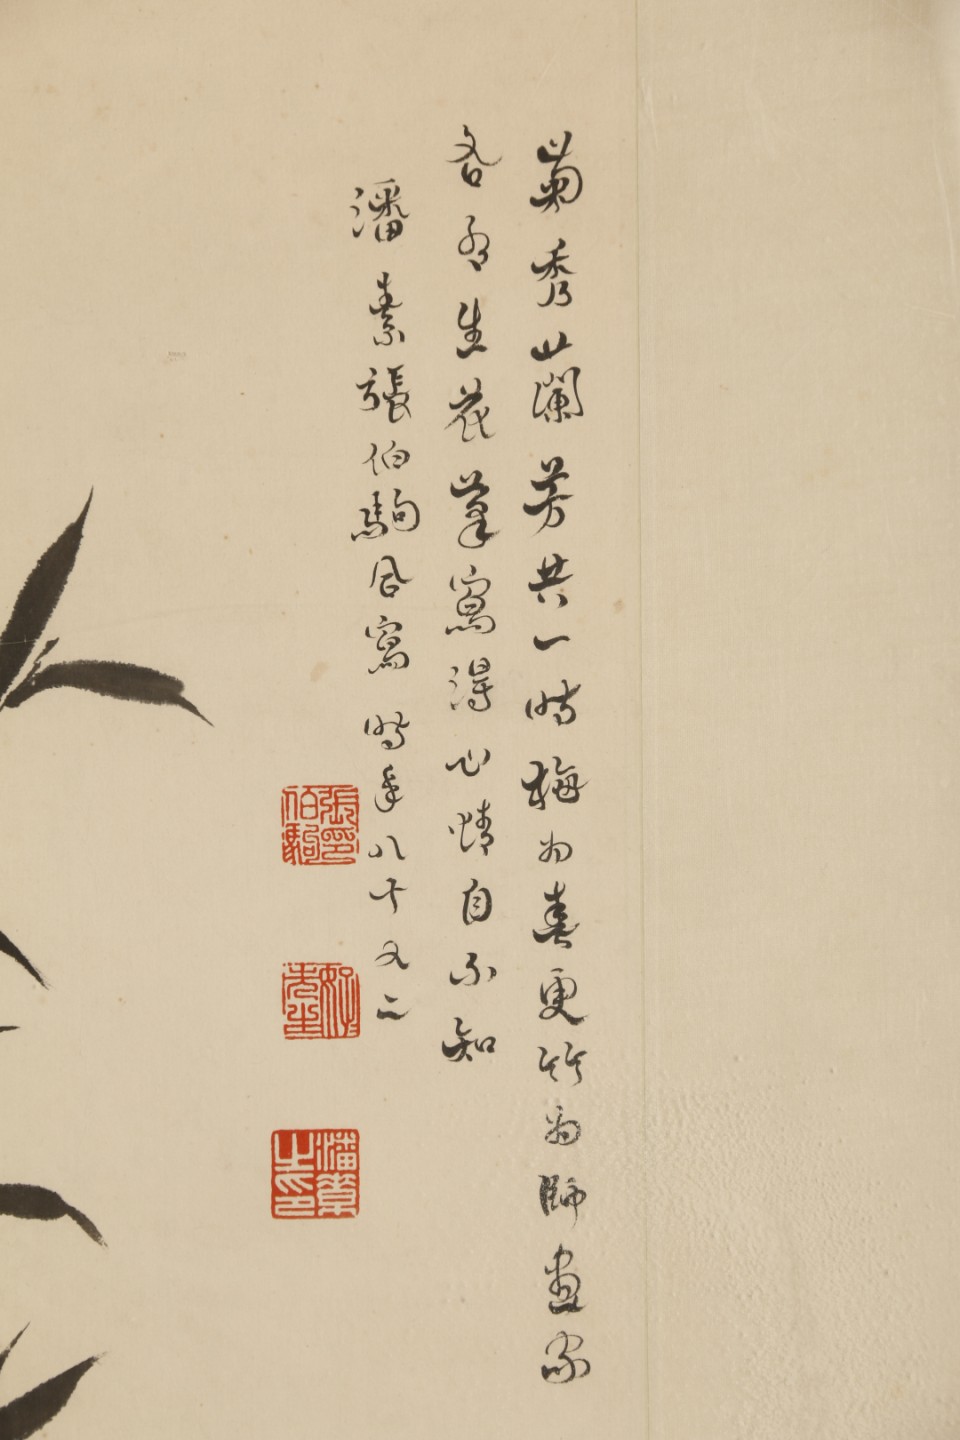 菊秀蘭芳共一時梅为春更竹为師畫家
各有生花筆寫得心情自不知
潘素張伯駒合寫 時年八十又二
張印伯駒
好好先生
潘素之印